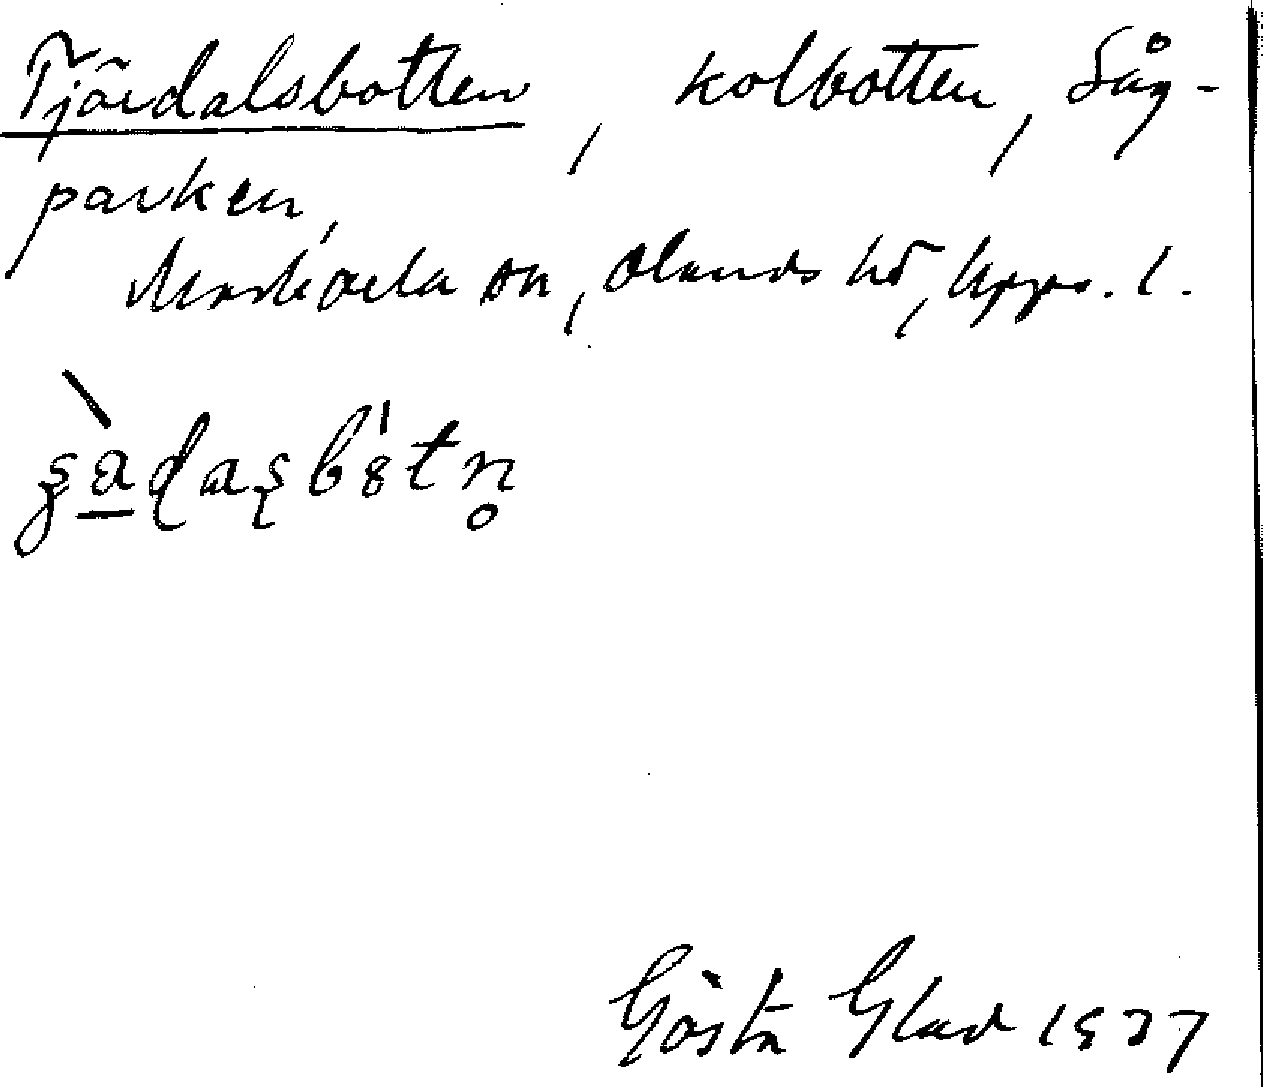 Tjärdalsbotten, kolbotten, Såg-
parken,
Morkarla sn, Olands hd, Upps. l.
Gösta Glad 1937